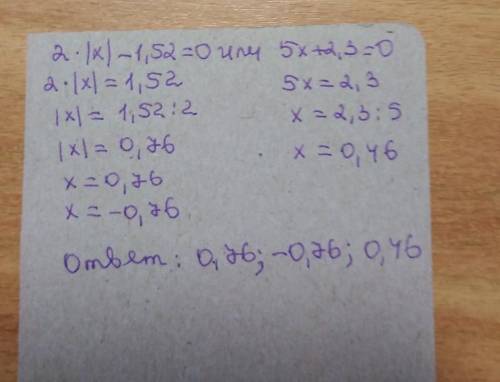 2·|x| - 1,52 = 0 или 5x+2,3=0
2·|x| = 1,52 5x = 2,3
|x| = 1,52:2 x = 2,3:5
|x| = 0,76 x = 0,46
x = 0,76
x = -0,76
Ответ: 0,76; -0,76; 0,46